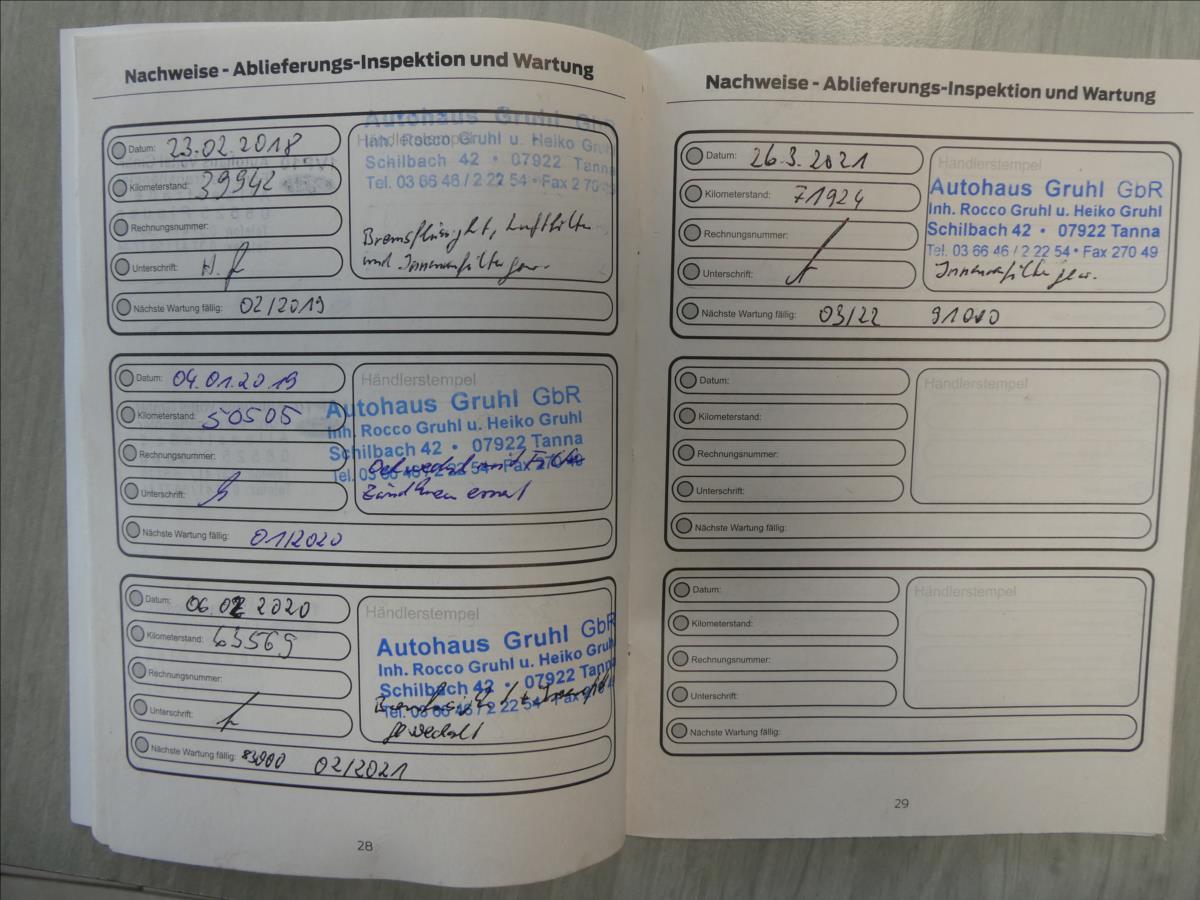 Nachweise - Ablieferungs-Inspektion und Wartung
Datum: 23.02.2018
Kilometerstand: 39942
Rechnungsnummer:
Unterschrift: H.
Nächste Wartung fällig: 02/2019
Händlerstempel
Autohaus Gruhl GbR
Inh. Rocco Gruhl u. Heiko Gruhl
Schilbach 42 • 07922 Tanna
Tel. 03 66 46 / 2 22 54 • Fax 2 70
Bremsflüssigkt, Luftfilter
und Innenraumfilter gew.
Datum: 04.01.2019
Kilometerstand: 50505
Rechnungsnummer:
Unterschrift:
Nächste Wartung fällig: 01/2020
Händlerstempel
Autohaus Gruhl GbR
Inh. Rocco Gruhl u. Heiko Gruhl
Schilbach 42 • 07922 Tanna
Tel. 03 66 46 / 2 22 54 • Fax 270 49
Ölwechsel mit Filter
Zündkerzen erneut
Datum: 06.02 2020
Kilometerstand: 63569
Rechnungsnummer:
Unterschrift:
Nächste Wartung fällig: 83000 02/2021
Händlerstempel
Autohaus Gruhl GbR
Inh. Rocco Gruhl u. Heiko Gruhl
Schilbach 42 • 07922 Tanna
Tel. 03 66 46 / 2 22 54 • Fax
gewechselt
28
Nachweise - Ablieferungs-Inspektion und Wartung
Datum: 26.3.2021
Kilometerstand: 71924
Rechnungsnummer:
Unterschrift:
Nächste Wartung fällig: 03/22 91000
Händlerstempel
Autohaus Gruhl GbR
Inh. Rocco Gruhl u. Heiko Gruhl
Schilbach 42 • 07922 Tanna
Tel. 03 66 46 / 2 22 54 • Fax 270 49
Innenraumfilter gew.
Datum:
Kilometerstand:
Rechnungsnummer:
Unterschrift:
Nächste Wartung fällig:
Händlerstempel
Datum:
Kilometerstand:
Rechnungsnummer:
Unterschrift:
Nächste Wartung fällig:
Händlerstempel
29